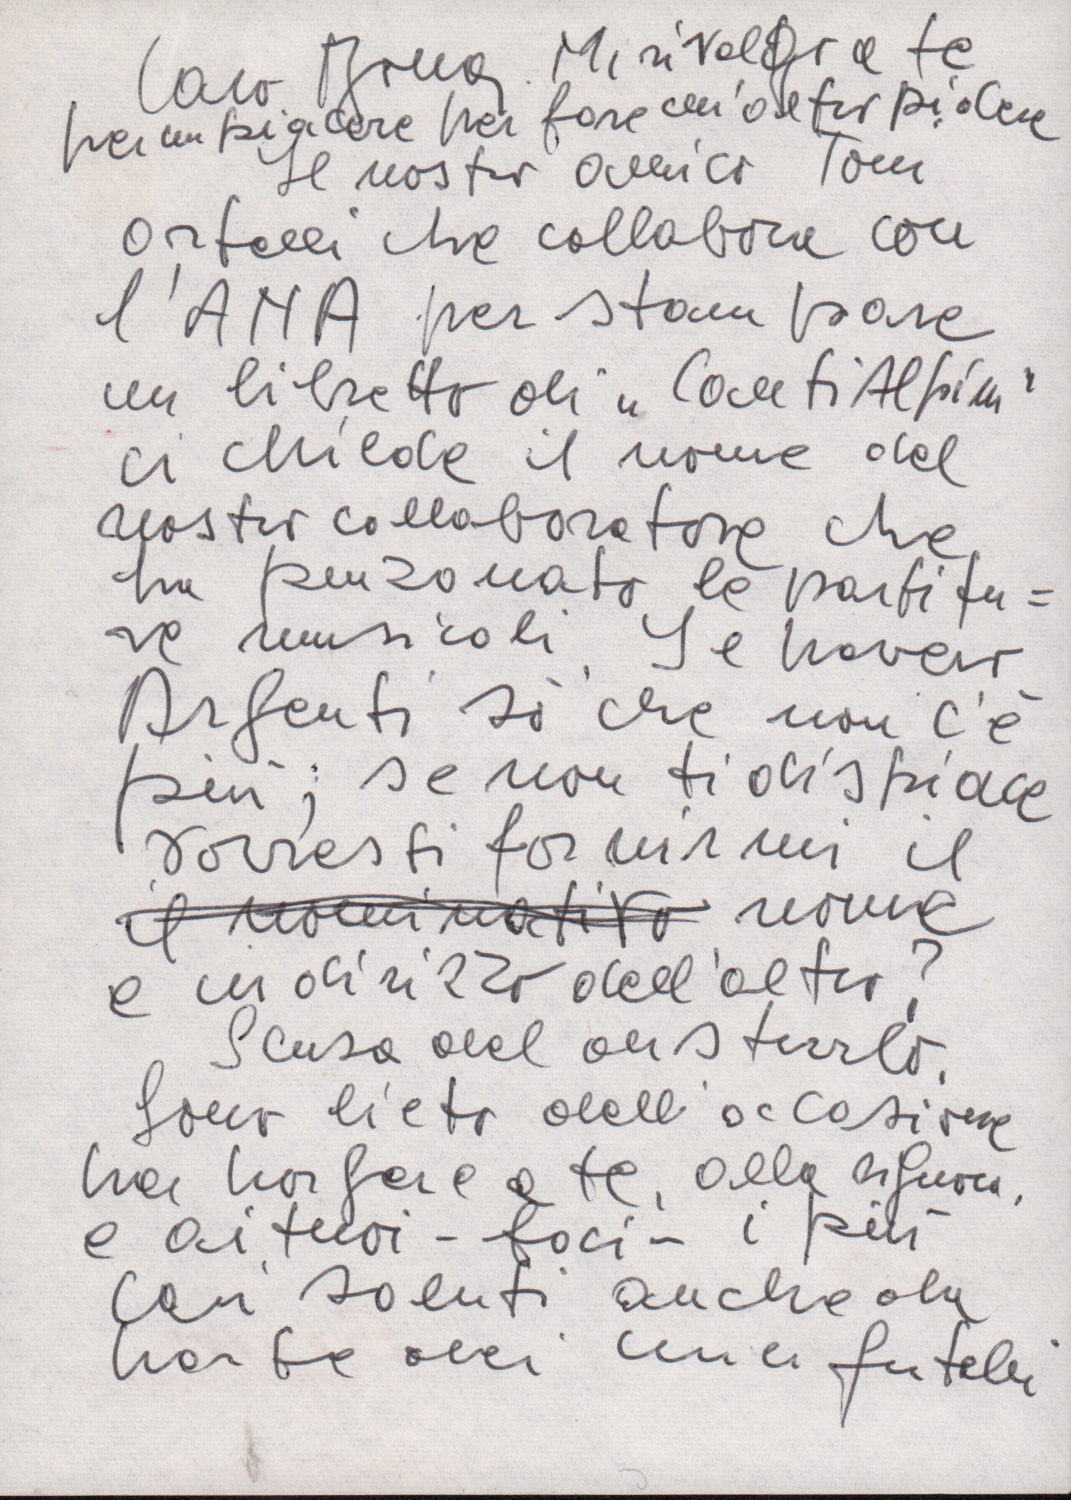 Caro Mirna, Mi rivolgo a te
per un piacere per fare un'altro piacere
Il nostro amico Tom
Ortelli che collabora con
l'ANA per stampare
un libretto di "Canti Alpini"
ci chiede il nome del
nostro collaboratore che
ha penzonato le partitu=
re musicali. Il povero
Argenti so che non c'è
più; se non ti dispiace
vorresti fornirmi il
il nominativo nome
e indirizzo dell'altro?
Scusa del disturbo.
Sono lieto dell'occasione
per porgere a te, alla signora,
e ai tuoi - foci - i più
cari saluti anche da
parte dei miei fratelli